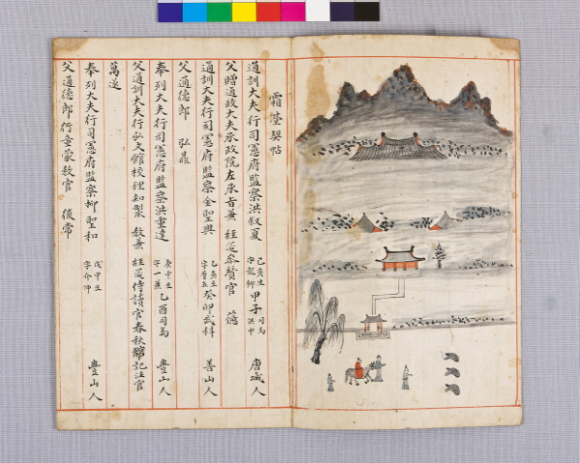 霜臺契帖
通訓大夫行司憲府監察洪叙夏 己亥生 字龍卿 甲子司馬 洪中 唐城人
父贈通政大夫承政院左承旨兼 經筵參贊官 德
通訓大夫行司憲府監察金聖興 己亥生 癸卯武科 善山人
父通德郎 弘鼎
奉列大夫行司憲府監察洪重達 庚申生 字一兼 乙酉司馬 豊山人
父通訓大夫行弘文館校理知製 敎兼 經筵侍讀官春秋館記注官
萬遂
奉列大夫行司憲府監察柳聖和 戊申生 字介仲 豊山人
父通德郎行童蒙敎官 後常